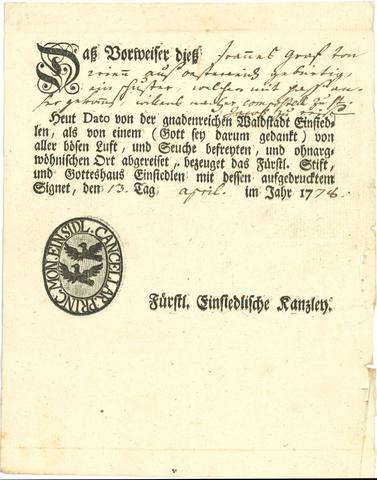 Daß Vorweiser dieß Joannes Graf von
wienn aus oestereich gebürtig,
ein schuster, welcher mit
willens nacher compostell zu
Heut Dato von der gnadenreichen Waldstadt Einsied-
len, als von einem (Gott sey darum gedankt) von
aller bösen Luft, und Seuche befreyten, und ohnarg-
wöhnischen Ort abgereiset, bezeuget das Fürstl. Stift,
und Gotteshaus Einsiedlen mit dessen aufgedrucktem
Signet, den 13. Tag april. im Jahr 1778.
CANCELLAR. PRINC. MON. EINSIDL.
Fürstl. Einsiedlische Kanzley.